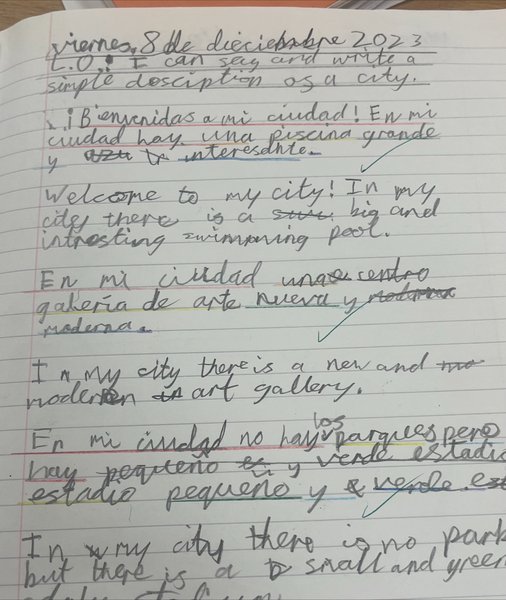 viernes, 8 de dieciembre 2023
L.O.: I can say and write a
simple desciption os a city.
¡Bienvenidas a mi ciudad! En mi
ciudad hay una piscina grande
y interesante.
Welcome to my city! In my
city there is a big and
intresting swimming pool.
En mi ciudad una centro
galería de arte nueva y moderna
moderna.
In my city there is a new and mo
modern in art gallery.
los
En mi ciudad no hay parques pero
hay pequeño y verde estadio
estadio pequeño y verde est
In my city there is no park
but there is a small and green